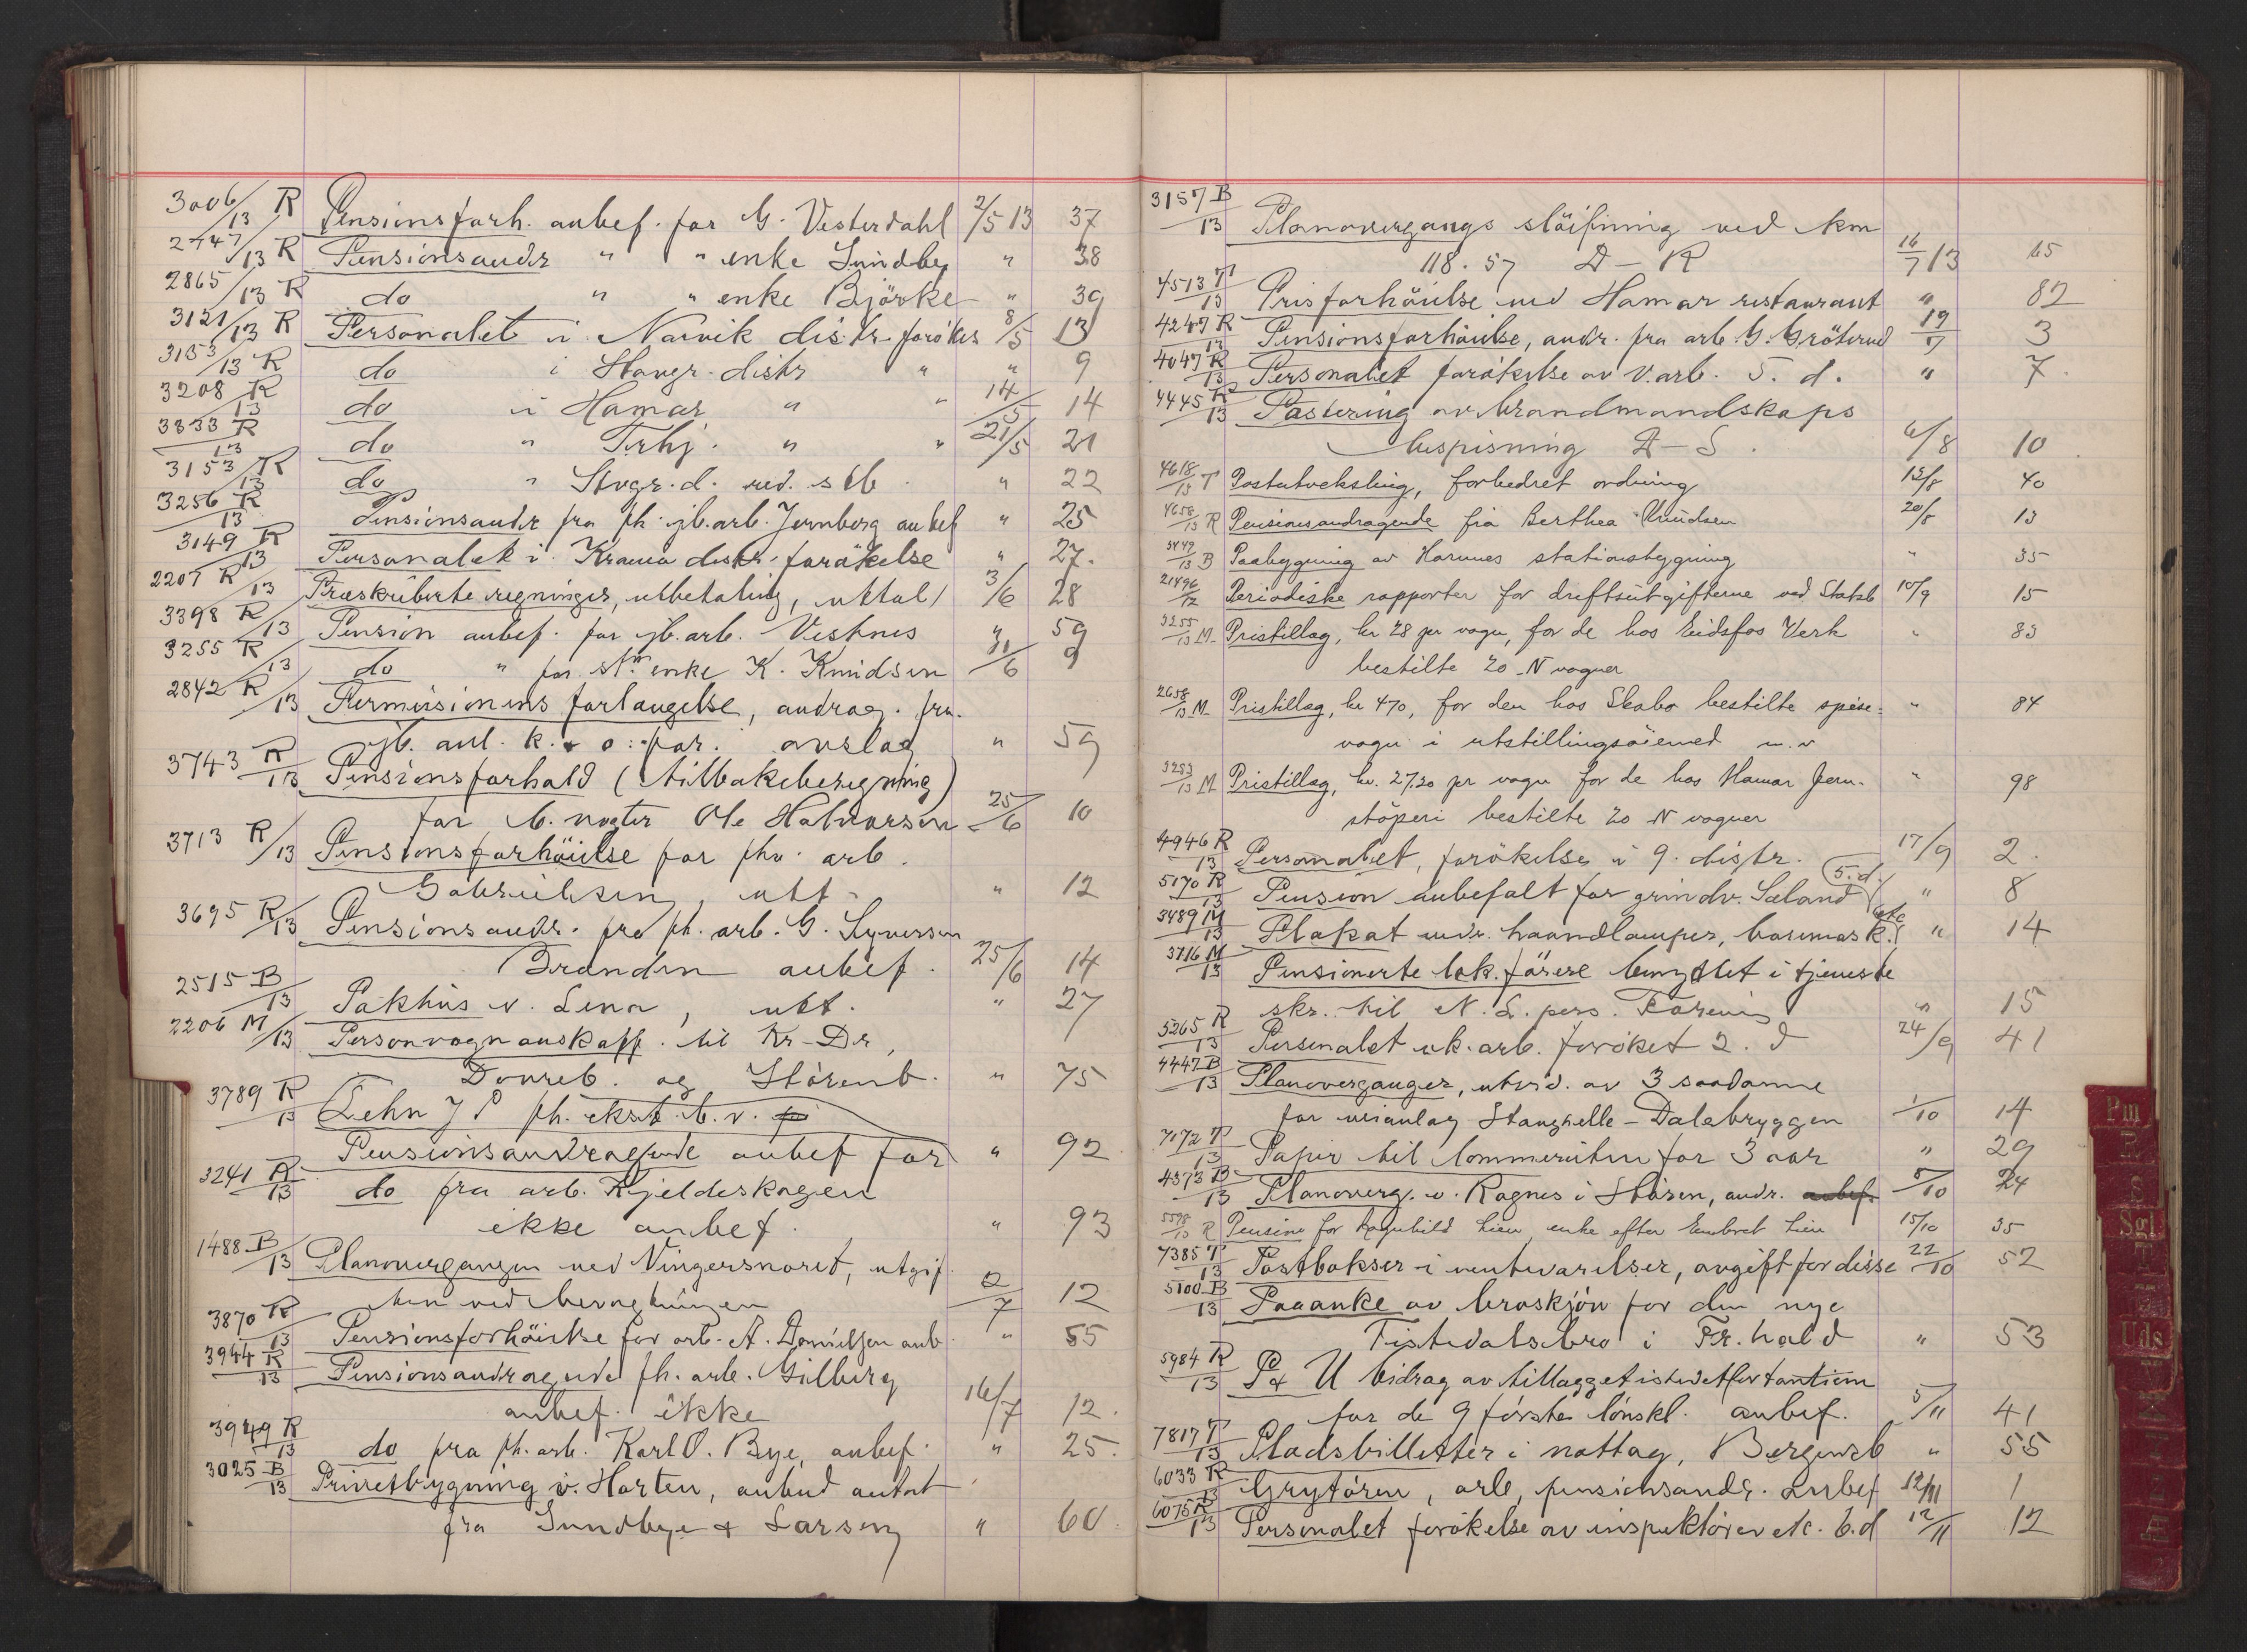 3006/13 R Pensionsforh. anbef. for G. Vesterdahl 2/5 13 37
2747/13 R Pensionsandr " " enke Lundby " 38
2865/13 R do " " enke Björke " 39
3121/13 R Personalet i Narvik distr. forökes 8/5 13
3153/13 R do i Stavgr. distr " " 9
3208 R/13 do i Hamar " " 14/5 14
3333 R/13 do " Trhj. " " 21/5 21
3153 R/13 do " Stvgr. d. red. s 16. " 22
3256 R/13 Pensionsandr fra fh. jb.arb. Jernberg anbef " 25
3149 R/13 Personalet i Krania distr. forökelse " 27.
2207 R/13 Præskriberte regninger, utbetaling, uttal 3/6 28
3398 R/13 Pension anbef. for jb.arb. Vestnes " 59
3255 R/13 do " for stm enke K. Knudsen 11/6 9
2842 R/13 Permissionens forlængelse, andrag. fra
jb. anl. k. & o: par. avslag " 59
3743 R/13 Pensionsforhold (tilbakeberegning)
for b. vogter Ole Halvorsen 25/6 10
3713 R/13 Pensionsforhöielse for fhv. arb.
Gabrielsen, utt. " 12
3695 R/13 Pensionsandr. fra fh. arb. G. Syversen
Branden anbef. 25/6 14
2515 B/13 Pakhus v. Lena, utt. " 27
2206 M/13 Personvognanskaff. til Kr-Dr,
Dovreb. og Störenb. " 75
3789 R/13 Lehn J P fh. ekstr. b. v.
Pensionsandragende anbef for " 92
3241 R/13 do fra arb. Kjeldeskogen
ikke anbef. " 93
1488 B/13 Planovergangen ved Vingersnoret, utgif
ten ved bevogtningen 2/7 12
3870 R/13 Pensionsforhöielse for arb. A. Danielsen anb. " 55
3944 R/13 Pensionsandragende fh. arb. Gilberg
anbef. ikke 16/7 12.
3949 R/13 do fra fh. arb. Karl O. Bye, anbef. " 25.
3025 B/13 Privetbygning v. Horten, anbud antat
fra Lundbye & Larsen " 60.
3157 B/13 Planovergangs slöifning ved km
118.57 D-R 16/7 13 65
4513 T/13 Prisforhöielse ved Hamar restaurant " 82
4247 R/13 Pensionsforhöielse, andr. fra arb. G. Gröterud 19/7 3
4047 R/13 Personalet forökelse av v.arb. 5. d. " 7.
4445 R/13 Postering av brandmandskaps
bespisning D-S. 6/8 10
4618/13 T Postutveksling, forbedret ordning 13/8 40
4658/13 R Pensionsandragende fra Berthea Knudsen 20/8 13
3449/13 B Paabygning av Harunes stationsbygning " 35
21496/12 Periodiske rapporter for driftsutgifterne ved Statsb 10/9 15
3255/13 M. Pristillæg, kr 28 pr vogn, for de hos Eidsfos Verk " 83
bestilte 20 N vogner
2658/13 M. Pristillæg, kr 470, for den hos Skabo bestilte spise= " 84
vogn i utstillingsöiemed m. v
3253/13 M Pristillæg, kr. 27.20 pr vogn for de hos Hamar Jern- " 98
stöperi bestilte 20 N vogner
4946 R/13 Personalet, forökelse i 9. distr. 17/9 2.
5170 R/13 Pension anbefalt for grindv. Sæland (5. d.) " 8
3489 M/13 Plakat vedr. haandlamper, basunask. etc " 14
3716 M/13 Pensionerte lok.förere benyttet i tjeneste
skr. til N. L. pers. Forening " 15
5265 R/13 Personalet ek. arb. foröket 2. d 24/9 41
4447 B/13 Planoverganger, utvid. av 3 saadanne
for veianlæg Stanghelle - Dalebryggen 1/10 14
7172 T/13 Papir til kommeriten for 3 aar " 29
4373 B/13 Planoverg. v. Rognes i Stören, andr. anbef. 8/10 24
5598/13 R Pension for Ragnhild Lien enke efter Embret Lien 15/10 35
7385 T/13 Postbokser i venteværelser, avgift for disse 22/10 52
5100 B/13 Paaanke av braskjön for den nye
Tistedalsbro i Fr.hald " 53
5984 R/13 P & U bidrag av tillægget istedetfor tantieme
for de 9 förste lönskl. anbef. 5/11 41
7817 T/13 Pladsbilletter i nattog, Bergensb " 55
6033 R/13 Grytören, arb, pensionsandr. anbef 12/11 1
6075 R/13 Personalet forökelse av inspektörer etc. 6.d 12/11 12
Pm
R
S
Sgl
T
Uds